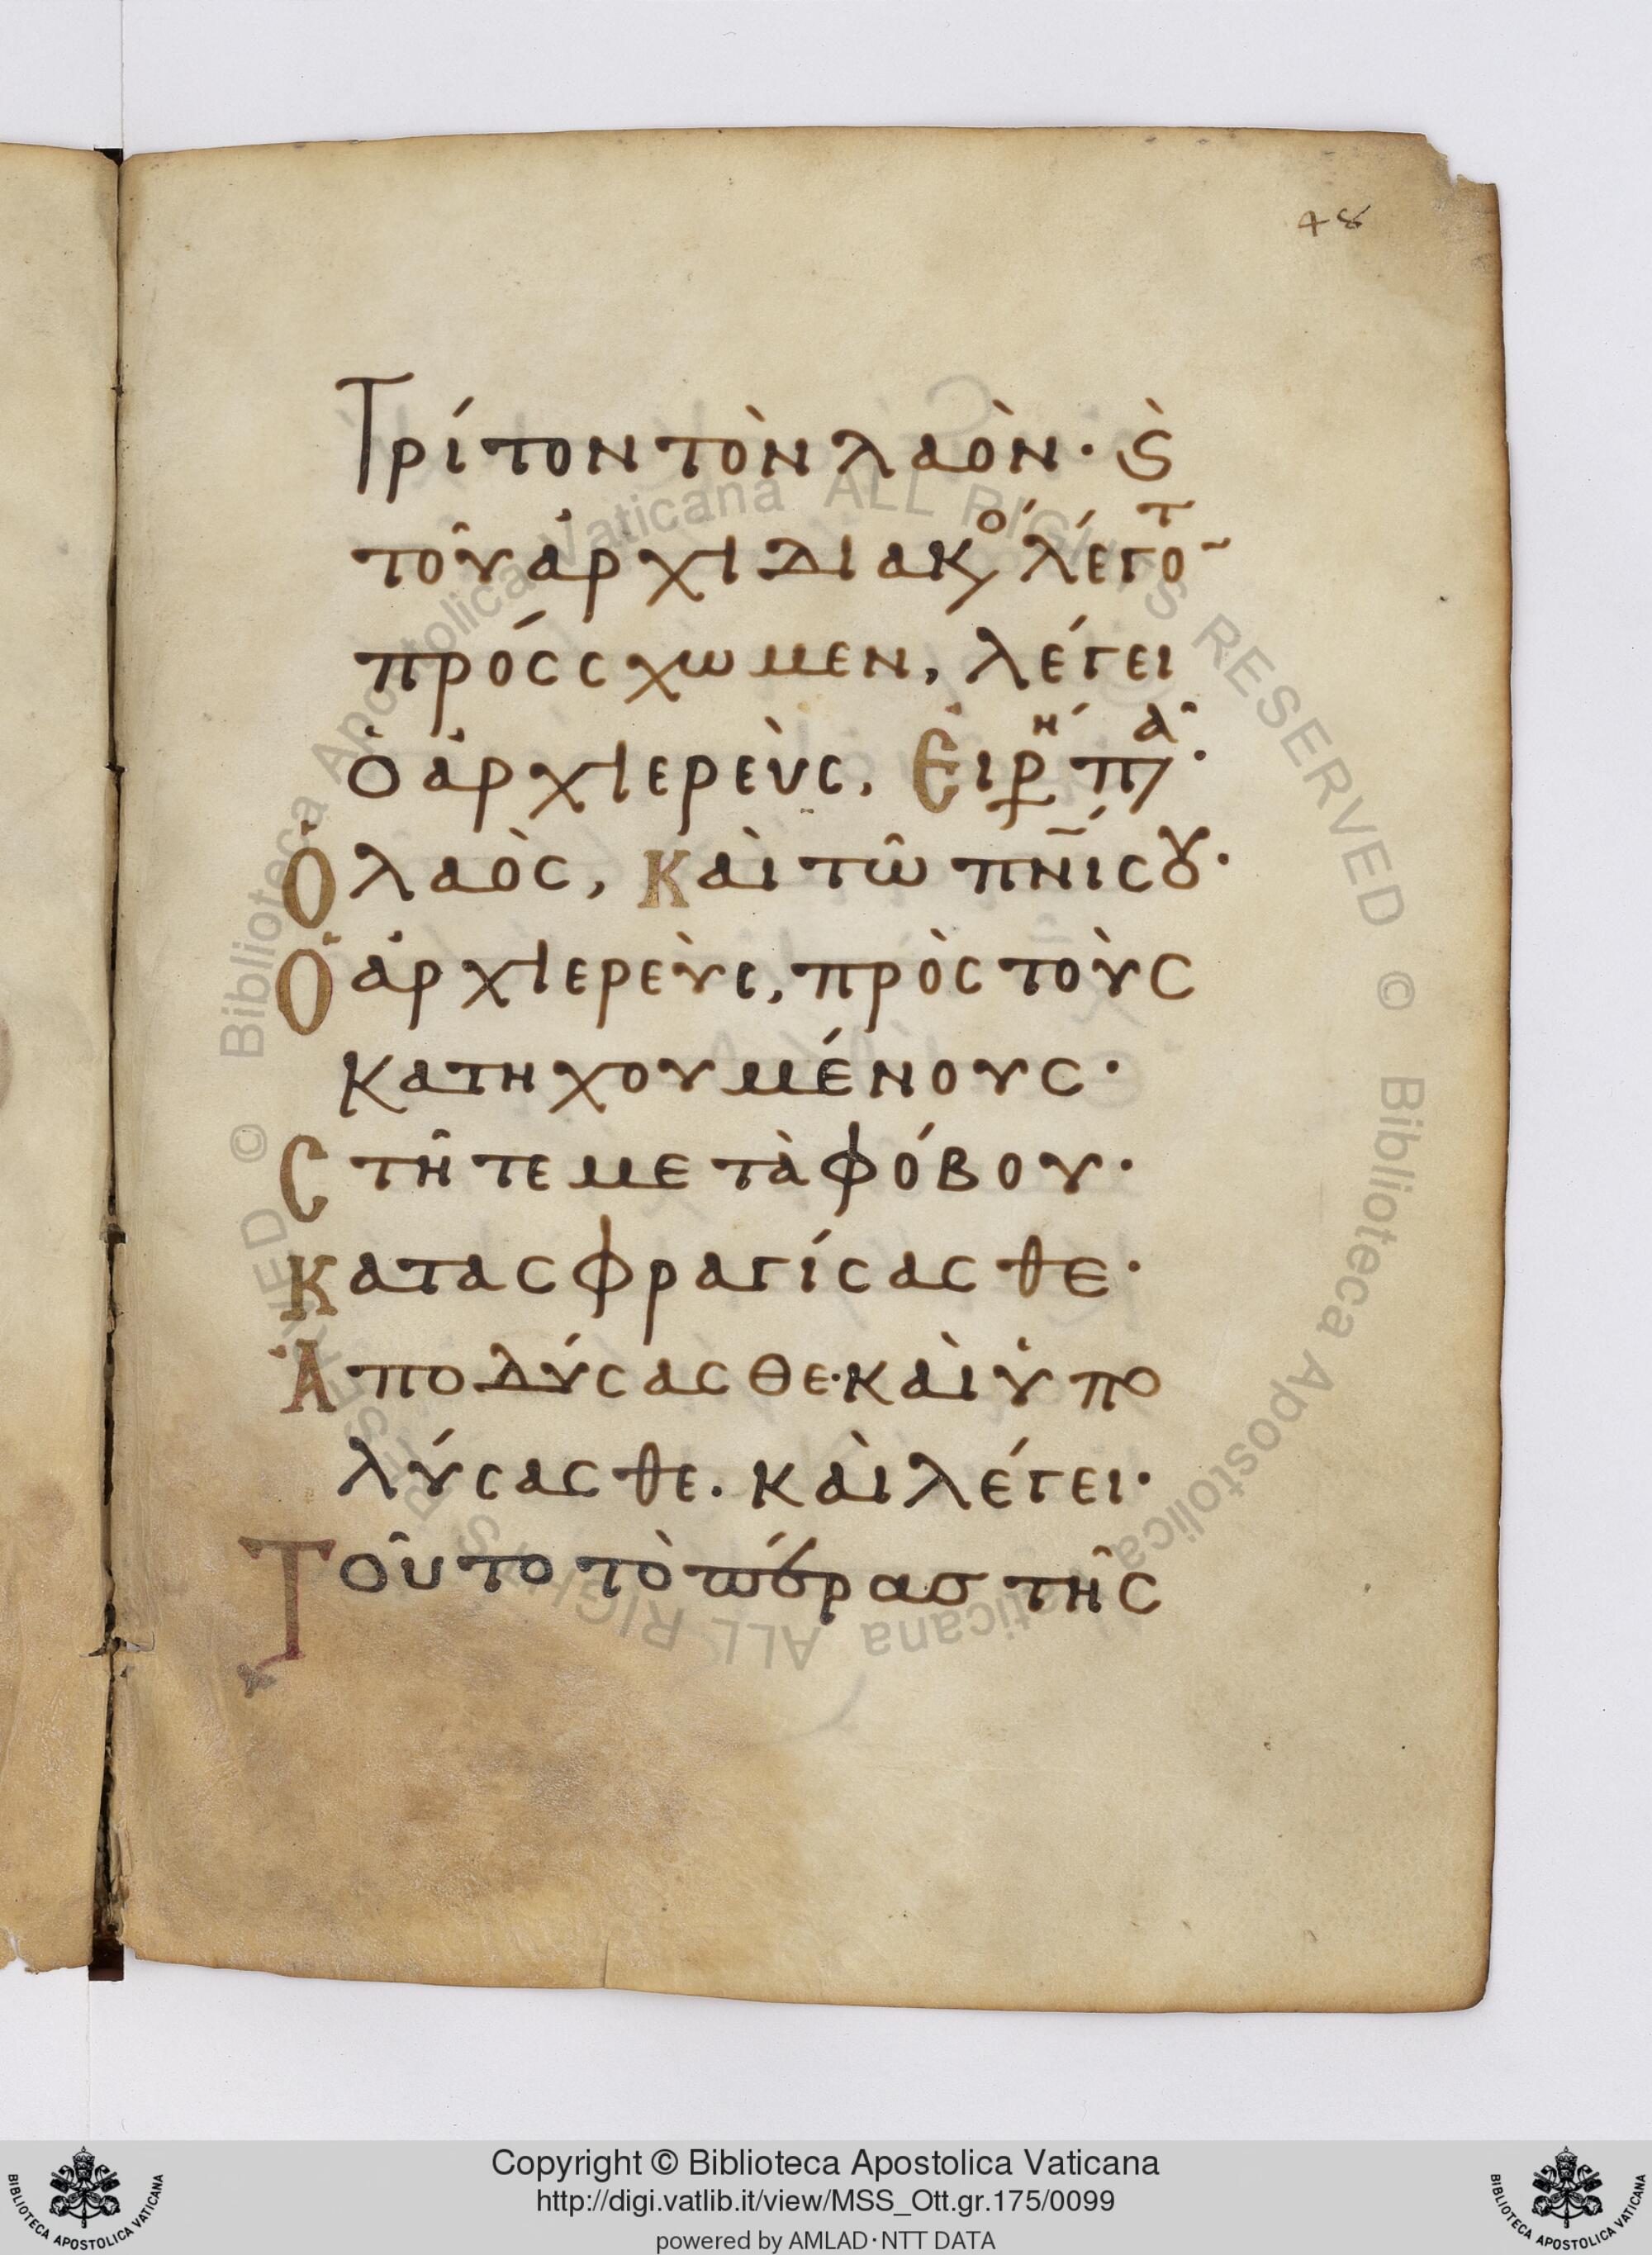 48
Τρίτον τὸν λαὸν· ϛ̀
τοῦ ἀρχιδιακο´ λέγοτ~
πρόσσχωμεν, λέγει
ὁ ἀρχιερεὺς, Ειρή πᾶ·
Ὁ λαὸς, Καὶ τῶ πνῑί σου·
Ὁ ἀρχιερεὺς, πρὸς τοὺς
κατηχουμένους·
Στῆτε μετὰ φόβου·
Κατασφραγίσασθε·
Ἀποδύσασθε· καὶ ὑπο
λύσασθε. καὶ λέγει·
Τοῦτο τὸ πέρας τῆς
Copyright © Biblioteca Apostolica Vaticana
http://digi.vatlib.it/view/MSS_Ott.gr.175/0099
powered by AMLAD·NTT DATA
BIBLIOTECA APOSTOLICA VATICANA
BIBLIOTECA APOSTOLICA VATICANA
© Biblioteca Apostolica Vaticana ALL RIGHTS RESERVED © Biblioteca Apostolica Vaticana ALL RIGHTS RESERVED